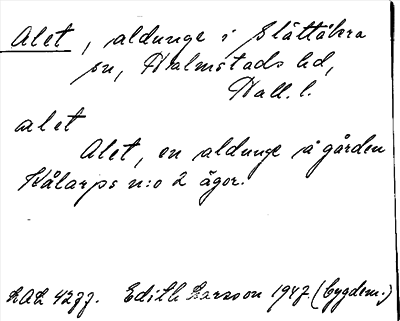 Alet, aldunge i Slättåkra
sn, Halmstads hd,
Hall. l.
alet
Alet, en aldunge å gården
Kålarps n:o 2 ägor.
LAL 4277. Edith Larsson 1947 (bygdem.)